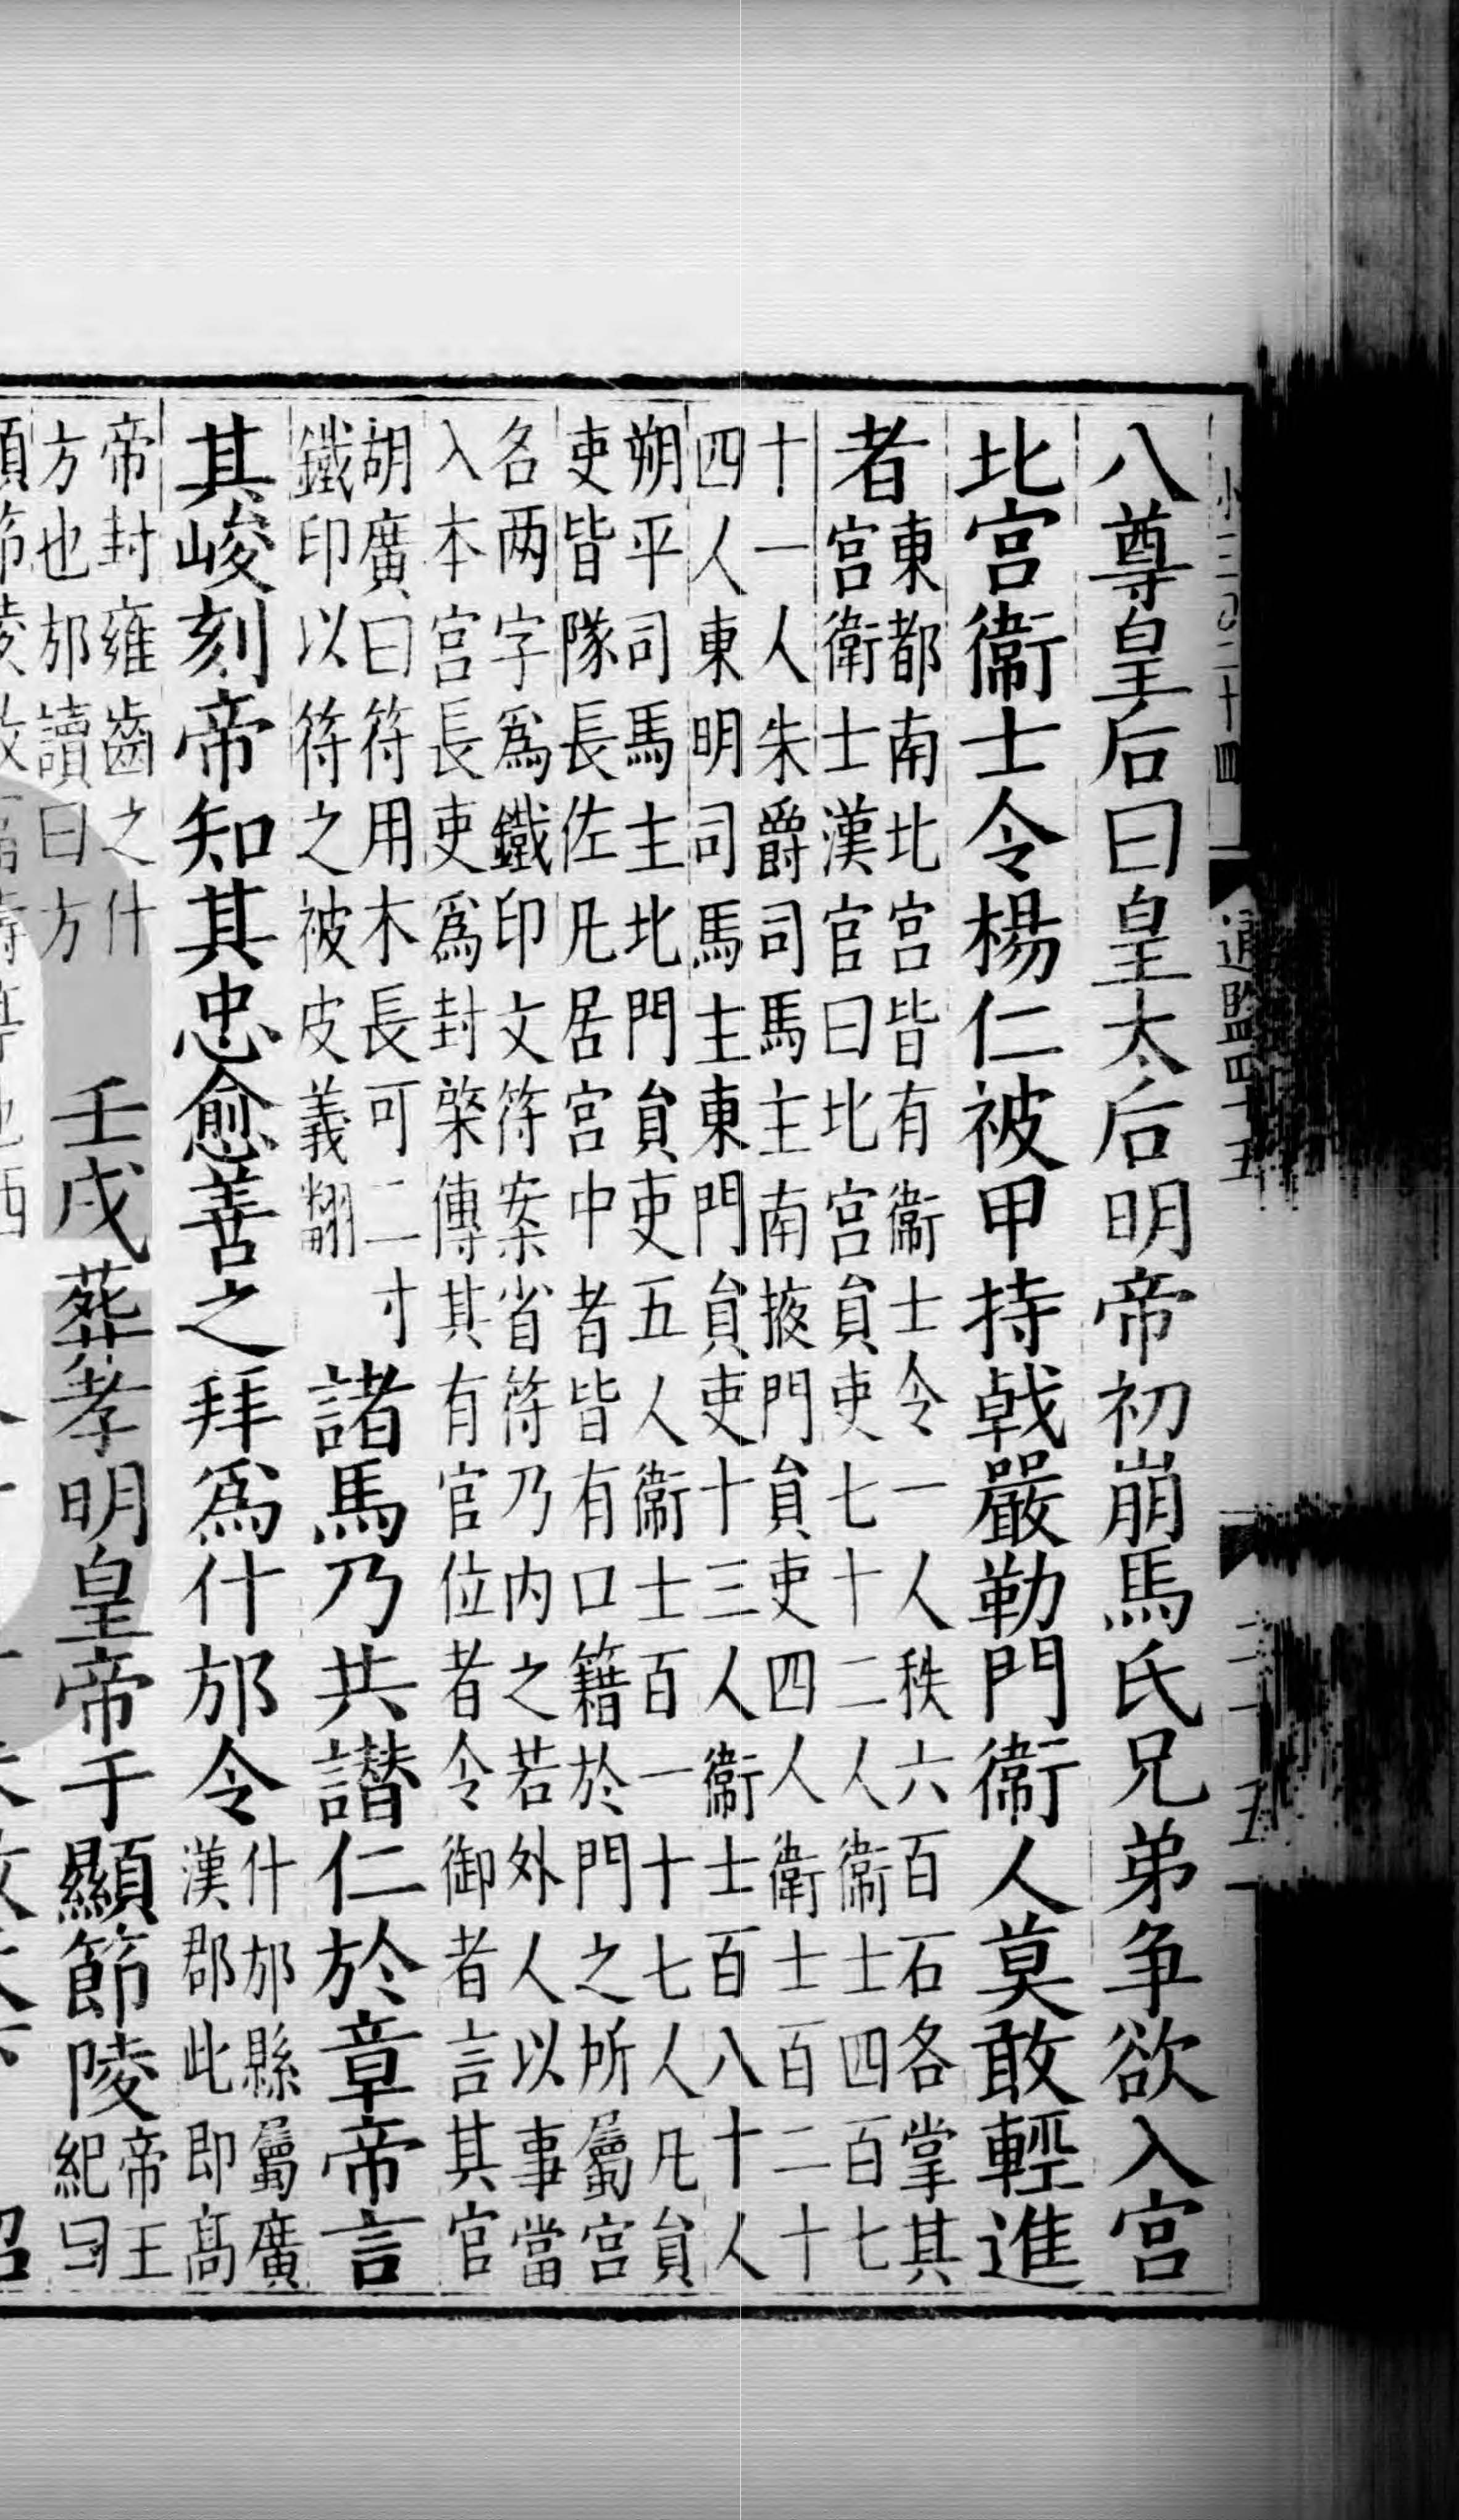 八尊皇后曰皇太后明帝初崩馬氏兄弟争欲入宮
北宮衞士令楊仁被甲持戟嚴勒門衞人莫敢輕進
者
東都南北宮皆有衞士令一人秩六百石各掌其
宮衛士漢官曰北宮員吏七十二人衞士四百七
十一人朱爵司馬主南掖門員吏四人衛士百二十
四人東明司馬主東門員吏十三人衞士百八十人
朔平司馬主北門員吏五人衞士百一十七人凡員
吏皆隊長佐凡居宮中者皆有口籍於門之所屬宮
各两字爲鐵印文符案省符乃内之若外人以事當
入本宮長吏爲封棨傳其有官位者令御者言其官
胡廣曰符用木長可二寸
鐵印以符之被皮義翻
諸馬乃共譖仁於章帝言
其峻刻帝知其忠愈善之拜爲什邡令
什邡縣屬廣
漢郡此即高
帝封雍齒之什
方也邡讀曰方
壬戌葬孝明皇帝于顯節陵
帝王
紀曰
通鑑四十五
五